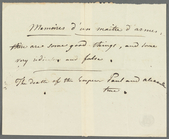 Mémoires d'un maître d'armes,
there are some good things, and some
very ridiculous and false.
The death of the Emperor Paul and
true.